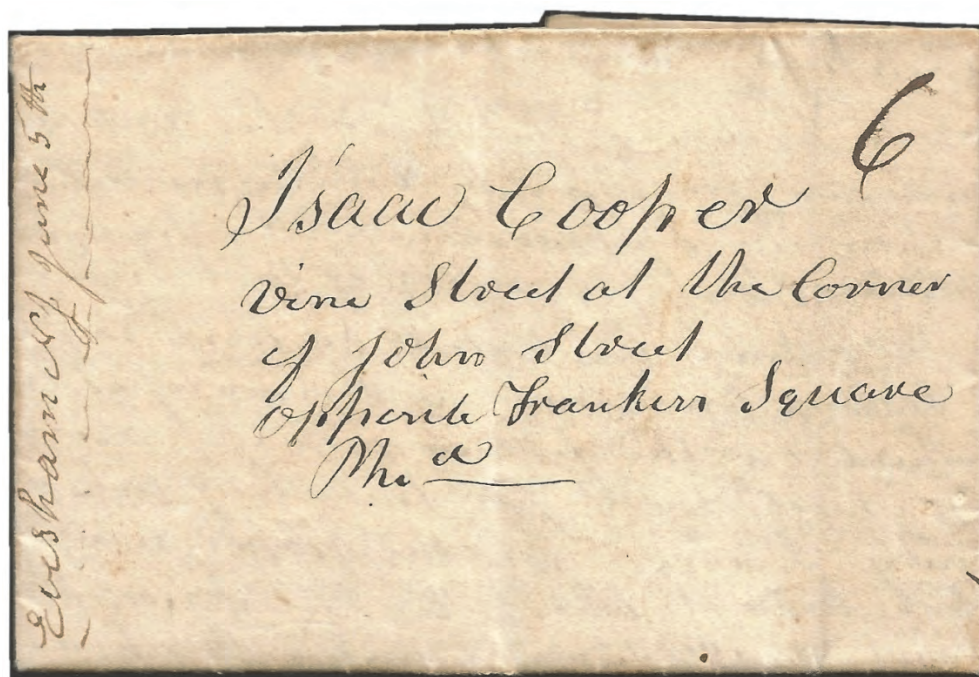 Evesham NJ June 5th
6
Isaac Cooper
Vine Street at the Corner
of John Street
opposite Franklin Square
Phi a